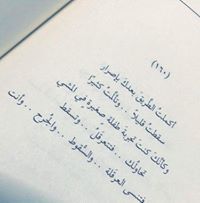 (١٦٠)
أكملتُ الطَّريقَ بعدكَ بإصرار
سقطتُ قليلاً .. وتألمتُ كثيرًا
وكأنَّكَ كنتَ تجربةَ طفلةٍ صغيرةٍ في المشي
تحاولُكَ .. فتتعرقلُ .. وتسقط
فتنسى العرقلةَ .. والسُّقوطَ .. والجُرحَ .. وأنت